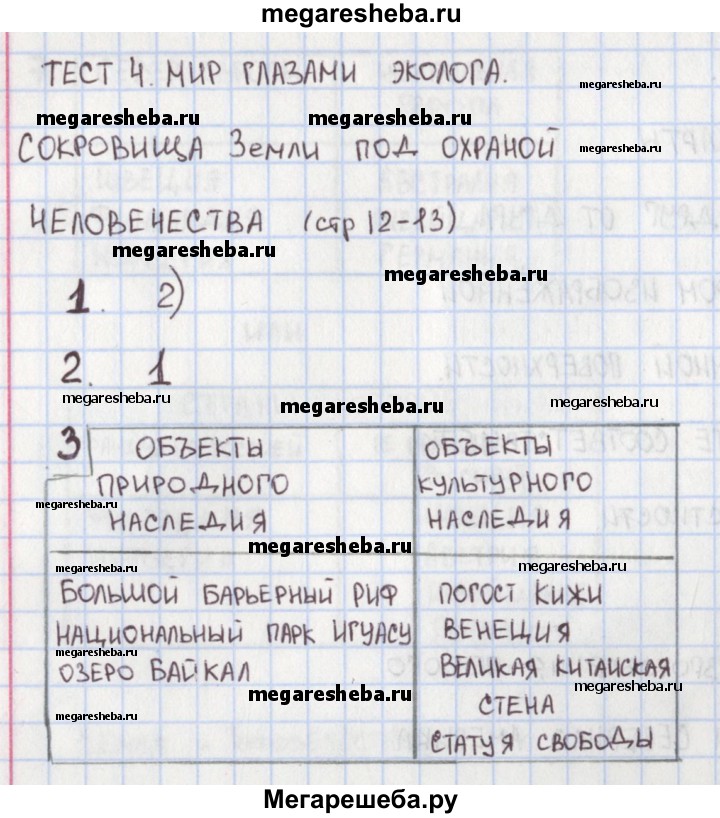 megaresheba.ru
ТЕСТ 4. МИР ГЛАЗАМИ ЭКОЛОГА.
megaresheba.ru
megaresheba.ru megaresheba.ru
СОКРОВИЩА Земли ПОД ОХРАНОЙ
megaresheba.ru
ЧЕЛОВЕЧЕСТВА (стр 12-13)
megaresheba.ru
megaresheba.ru
1. 2)
2. 1
megaresheba.ru megaresheba.ru megaresheba.ru
3 ОБЪЕКТЫ ПРИРОДНОГО НАСЛЕДИЯ
ОБЪЕКТЫ КУЛЬТУРНОГО НАСЛЕДИЯ
megaresheba.ru
megaresheba.ru
megaresheba.ru megaresheba.ru
БОЛЬШОЙ БАРЬЕРНЫЙ РИФ
НАЦИОНАЛЬНЫЙ ПАРК ИГУАСУ
ОЗЕРО БАЙКАЛ
ПОГОСТ КИЖИ
ВЕНЕЦИЯ
ВЕЛИКАЯ КИТАЙСКАЯ
СТЕНА
СТАТУЯ СВОБОДЫ
megaresheba.ru
megaresheba.ru
megaresheba.ru
Мегарешеба.ру